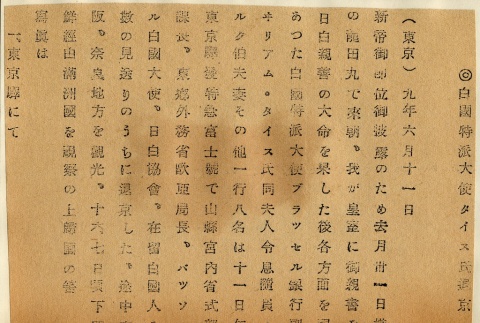 ◎白國特派大使タイス氏退京
(東京)九年六月十一日
新帝御即位御披露のため去月卅一日
の龍田丸で來朝。我が皇室に御親書を
日白親善の大命を果した後各方面を
あつた白國特派大使ブラツセル銀行
ヰリアム。タイス氏同夫人令息隨員
ルク伯夫妻その他一行八名は十一日午
東京驛發特急富士號で山縣宮内省式部
課長。東郷外務省歐亞局長。バツソ
ル白國大使。日白協會。在留白國人
數の見送りのうちに退京した。途中
阪。奈良地方を觀光。十六七日頃下
鮮經由滿洲國を視察の上歸國の筈
寫眞は
東京驛にて